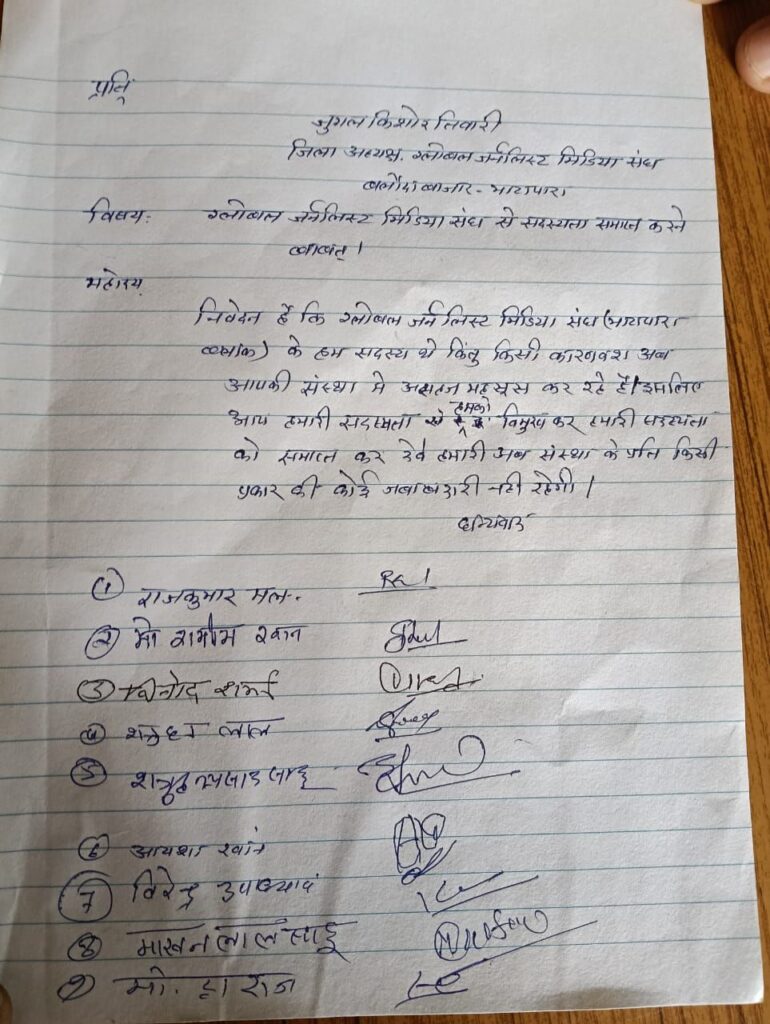 प्रति
जुगल किशोर तिवारी
जिला अध्यक्ष. ग्लोबल जर्नलिस्ट मिडिया संघ
बलौदाबाजार - भाटापारा
विषय: ग्लोबल जर्नलिस्ट मिडिया संघ से सदस्यता समाप्त करने
बाबत्।
महोदय
निवेदन है कि ग्लोबल जर्नलिस्ट मिडिया संघ (भाटापारा
ब्लाक) के हम सदस्य थे किंतु किसी कारणवश अब
आपकी संस्था मे असहज महसूस कर रहे हैं। इसलिए
आप हमारी सदस्यता से हमको विमुख कर हमारी सदस्यता
को समाप्त कर देवें हमारी अब संस्था के प्रति किसी
प्रकार की कोई जवाबदारी नही रहेगी।
धन्यवाद
① राजकुमार मल.
② मो शमीम खान
③ विनोद शर्मा
④ शत्रुहन लाल
⑤ शत्रुहन प्रसाद साहू
⑥ आयशा खान
⑦ विरेन्द्र उपाध्याय
⑧ माखन लाल साहू
⑨ मो.